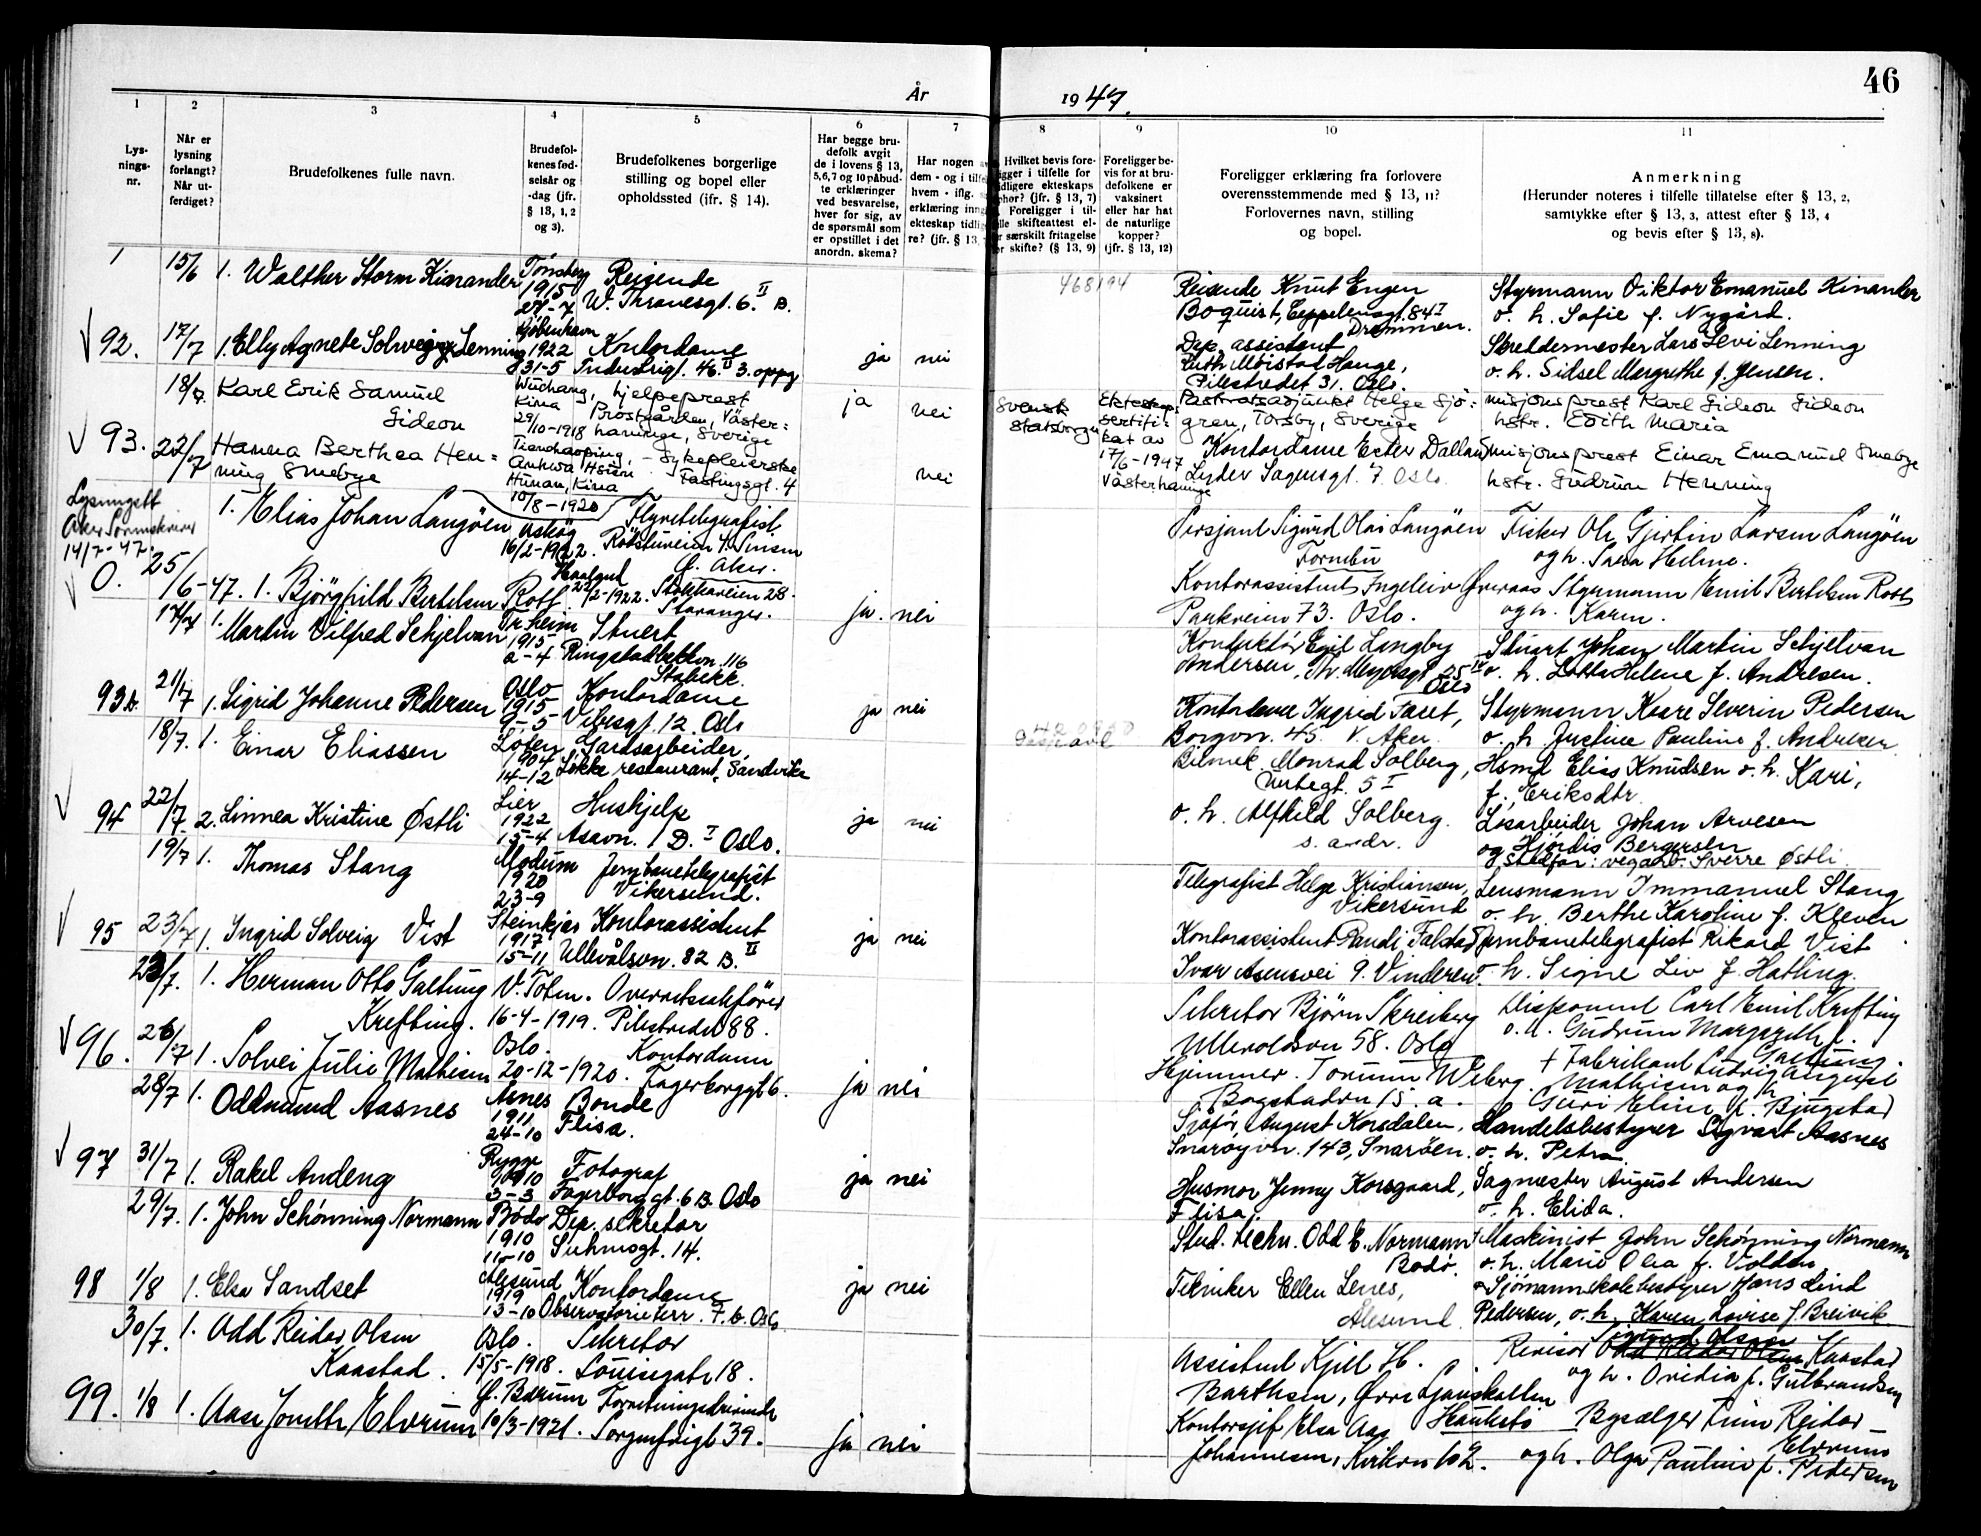 46
År 1947.
1 2 3 4 5 6 7 8 9 10 11
Lys-
nings-
nr.
Når er
lysning
forlangt?
Når ut-
ferdiget?
Brudefolkenes fulle navn.
Brudefol-
kenes fød-
selsår og
-dag (jfr.
§ 13, 1, 2
og 3).
Brudefolkenes borgerlige
stilling og bopel eller
opholdssted (jfr. § 14).
Har begge bru-
defolk avgit
de i lovens § 13,
5,6,7 og 10 påbud-
te erklæringer
ved besvarelse,
hver for sig, av
de spørsmål som
er opstillet i det
anordn. skema?
Har nogen
dem - og i
hvem - iflg.
erklæring
ekteskap
re? (jfr. § 13,
Hvilket bevis fore-
ligger i tilfelle for
tidligere ekteskaps
ophør? (jfr. § 13, 7)
Foreligger i til-
felle skifteattest el-
ler særskilt fritagelse
for skifte? (§ 13, 9)
Foreligger be-
vis for at bru-
defolkene er
vaksinert
eller har hat
de naturlige
kopper?
(jfr. § 13, 12)
Foreligger erklæring fra forlovere
overensstemmende med § 13, 11?
Forlovernes navn, stilling
og bopel.
Anmerkning
(Herunder noteres i tilfelle tillatelse efter § 13, 2,
samtykke efter § 13, 3, attest efter § 13, 4
og bevis efter § 13, 8).
15/6 1. Walther Storm Kinander Tønsberg Reisende
1915 27-7 W. Thranesgt. 6. II B.
468194
Reisende Knut Engen
Boquist, Eppelensgt. 84 I
Drammen.
Styrmann Viktor Emanuel Kinander
o. h. Sofie f. Nygård.
92. 17/7 1. Elly Agnete Solveig Lenning København
1922 31-5 Kontordame
Industrigt. 46. II 3. oppg
ja nei
Dep. assistent
Ruth Moistad Hauge,
Pilestredet 31. Oslo.
Skreddermester Lars Levi Lenning
o. h. Sidsel Margrethe f. Jensen.
18/7. Karl Erik Samuel
Gideon
Wuchang,
Kina
29/10-1918
hjelpeprest
Prostgården, Väster-
haninge, Sverige
ja nei
Svensk
statsborger
Ekteskaps
sertifi-
kat av
17/6-1947
Västerhaninge
Pastoratsadjunkt Helge Sjö-
gren, Torsby, Sverige
misjonsprest Karl Gideon Gideon
hstr. Edith Maria
93. 22/7 Hanna Berthea Hen-
ning Smebye
Anhwa Hsien
Hunan, Kina
10/8-1920
Sykepleierske
Fastingsgt. 4
nei
Kontordame Ester Dalland
Lyder Sagensgt. 7 Oslo.
misjonsprest Einar Emanuel Smebye
hstr. Gudrun Henning
Lysningsatt
Aker Sorenskriver
14/7-47.
1. Elias Johan Langøen
16/2-1922.
Flyvetelegrafist
Rødstuveien 4. Sinsen
Ø. Aker.
Sersjant Sigurd Olai Langøen
Fornebu
Fisker Ole Gjertin Larsen Langøen
og h. Sara Helme.
0. 25/6-47. 1. Bjørghild Bertelsen Rott
22/2-1922. Stokkaveien 28.
Stavanger.
ja. nei
Kontorassistent Ingeleiv Øveraas
Parkveien 73. Oslo.
Styrmann Emil Bertelsen Rott
og h. Karen.
17/7 1. Martin Vilfred Schjelvan Tr.heim
1915 2-4 Stuert
Ringstabekkvn. 116
Stabekk.
Konduktør Egil Langby
Andersen, Th. Meyersgt 25 IV
Oslo
Stuart Johan Martin Schjelvan
o. h. Lotta Helene f. Andresen.
93b. 21/7 1. Sigrid Johanne Pedersen Oslo
1915 9-5 Kontordame
Vibesgt. 12. Oslo
ja nei
Kontorlever Ingrid Faret,
Borgvn. 45 V. Aker.
Styrmann Kaare Severin Pedersen
o. h. Justine Pauline f. Andresen
18/7. 1. Einar Eliassen Løten
1904 14-12 Gardsarbeider,
Løkke restaurant, Sandvika
Bilmek. Monrad Solberg,
5 I
Hsmd Elias Knudsen o. h. Kari,
f. Eriksdtr
94 22/7. 2. Linnea Kristine Østli Lier
1922 15-4 Hushjelp
Asavn. 1 D. I Oslo.
ja nei
o. h. Alfhild Solberg.
s. adr.
Løsarbeider Johan Arvesen
og Hjørdis Bergersen
stedfar: vegarb. Sverre Østli
19/7 1. Thomas Stang Modum
1920 23-9 Jernbanetelegrafist
Vikersund.
Telegrafist Helge Kristiansen,
Vikersund
Lensmann Immanuel Stang
o. h. Berthe Karoline f. Kleven
95 23/7 1. Ingrid Solveig Vist Steinkjer
1917 15-11 Kontorassistent
Ullevålsvn. 82 B. II
ja nei
Kontorassistent Randi Falstad
Ivar Aasensvei 9. Vinderen
Jernbanetelegrafist Rikard Vist
o. h. Signe Liv f. Hatling.
23/7. 1. Herman Otto Galtung
Krefting.
V. Toten.
16-4-1919.
Overrettssakfører
Pilestredet 88.
Sekretær Bjørn Skreiberg
Ullevoldsvn 58. Oslo
Disponent Carl Emil Krefting
o. h. Gudrun Margrethe f.
Galtung.
96. 26/7 1. Solvei Julie Mathisen Oslo.
20-12-1920.
Kontordame
Fagerborggt 6.
ja nei
Hjemmev. Torunn Wiberg.
Bogstadvn 15. a.
+ Fabrikant Ludvig August
Mathisen og h.
Guri Eline f. Bjugstad
28/7 1. Oddmund Aasnes Åsnes
1911 24-10 Bonde
Flisa.
Sjåfør August Korsdalen,
Snarøyvn. 143, Snarøen.
Handelsbestyrer Sigvart Aasnes
o. h. Petra
97 31/7 1. Rakel Andeng Rygge
1910 3-3 Fotograf
Fagerborggt. 6 B. Oslo
ja nei
Husmor Jenny Korsgaard,
Flisa.
Sagmester August Andersen
o. h. Elida.
29/7. 1. John Schønning Normann Bodø
1910 Dep. sekretær
Suhmsgt. 14.
Stud. techn. Odd E. Normann
Bodø.
Maskinist John Schønning Normann
o. h. Marie Olea f. Volden
98 1/8 1. Elsa Sandset Ålesund
1919 13-10 Kontordame
Observatorie terr. 7. b. Oslo
ja nei
Tekniker Ellen Lenes,
Ålesund
Sjømannskolebestyrer Hans Lind
Pedersen, o. h. Karen Lovise f. Breivik
30/7. 1. Odd Reidar Olsen
Kaastad.
Oslo.
15/5-1918.
Sekretær
Louisegate 18.
Assistent Kjell H.
Barthsen, Øvre Ljanskollen
Hauketo
Sigurd Olsen
Revisor Odd Reidar Olsen Kaastad
og h. Ovidia f. Gulbrandsen
99. 1/8 1. Aase Jorditt Elverum Ø. Bærum
10/3-1921.
Forretningsdrivende
Sorgenfrigt 39.
ja nei
Kontorsjef Elsa Aas
Johannesen, Kirkevn 102.
Bysælger Finn Reidar
Elverum
og h. Olga Pauline f. Pedersen